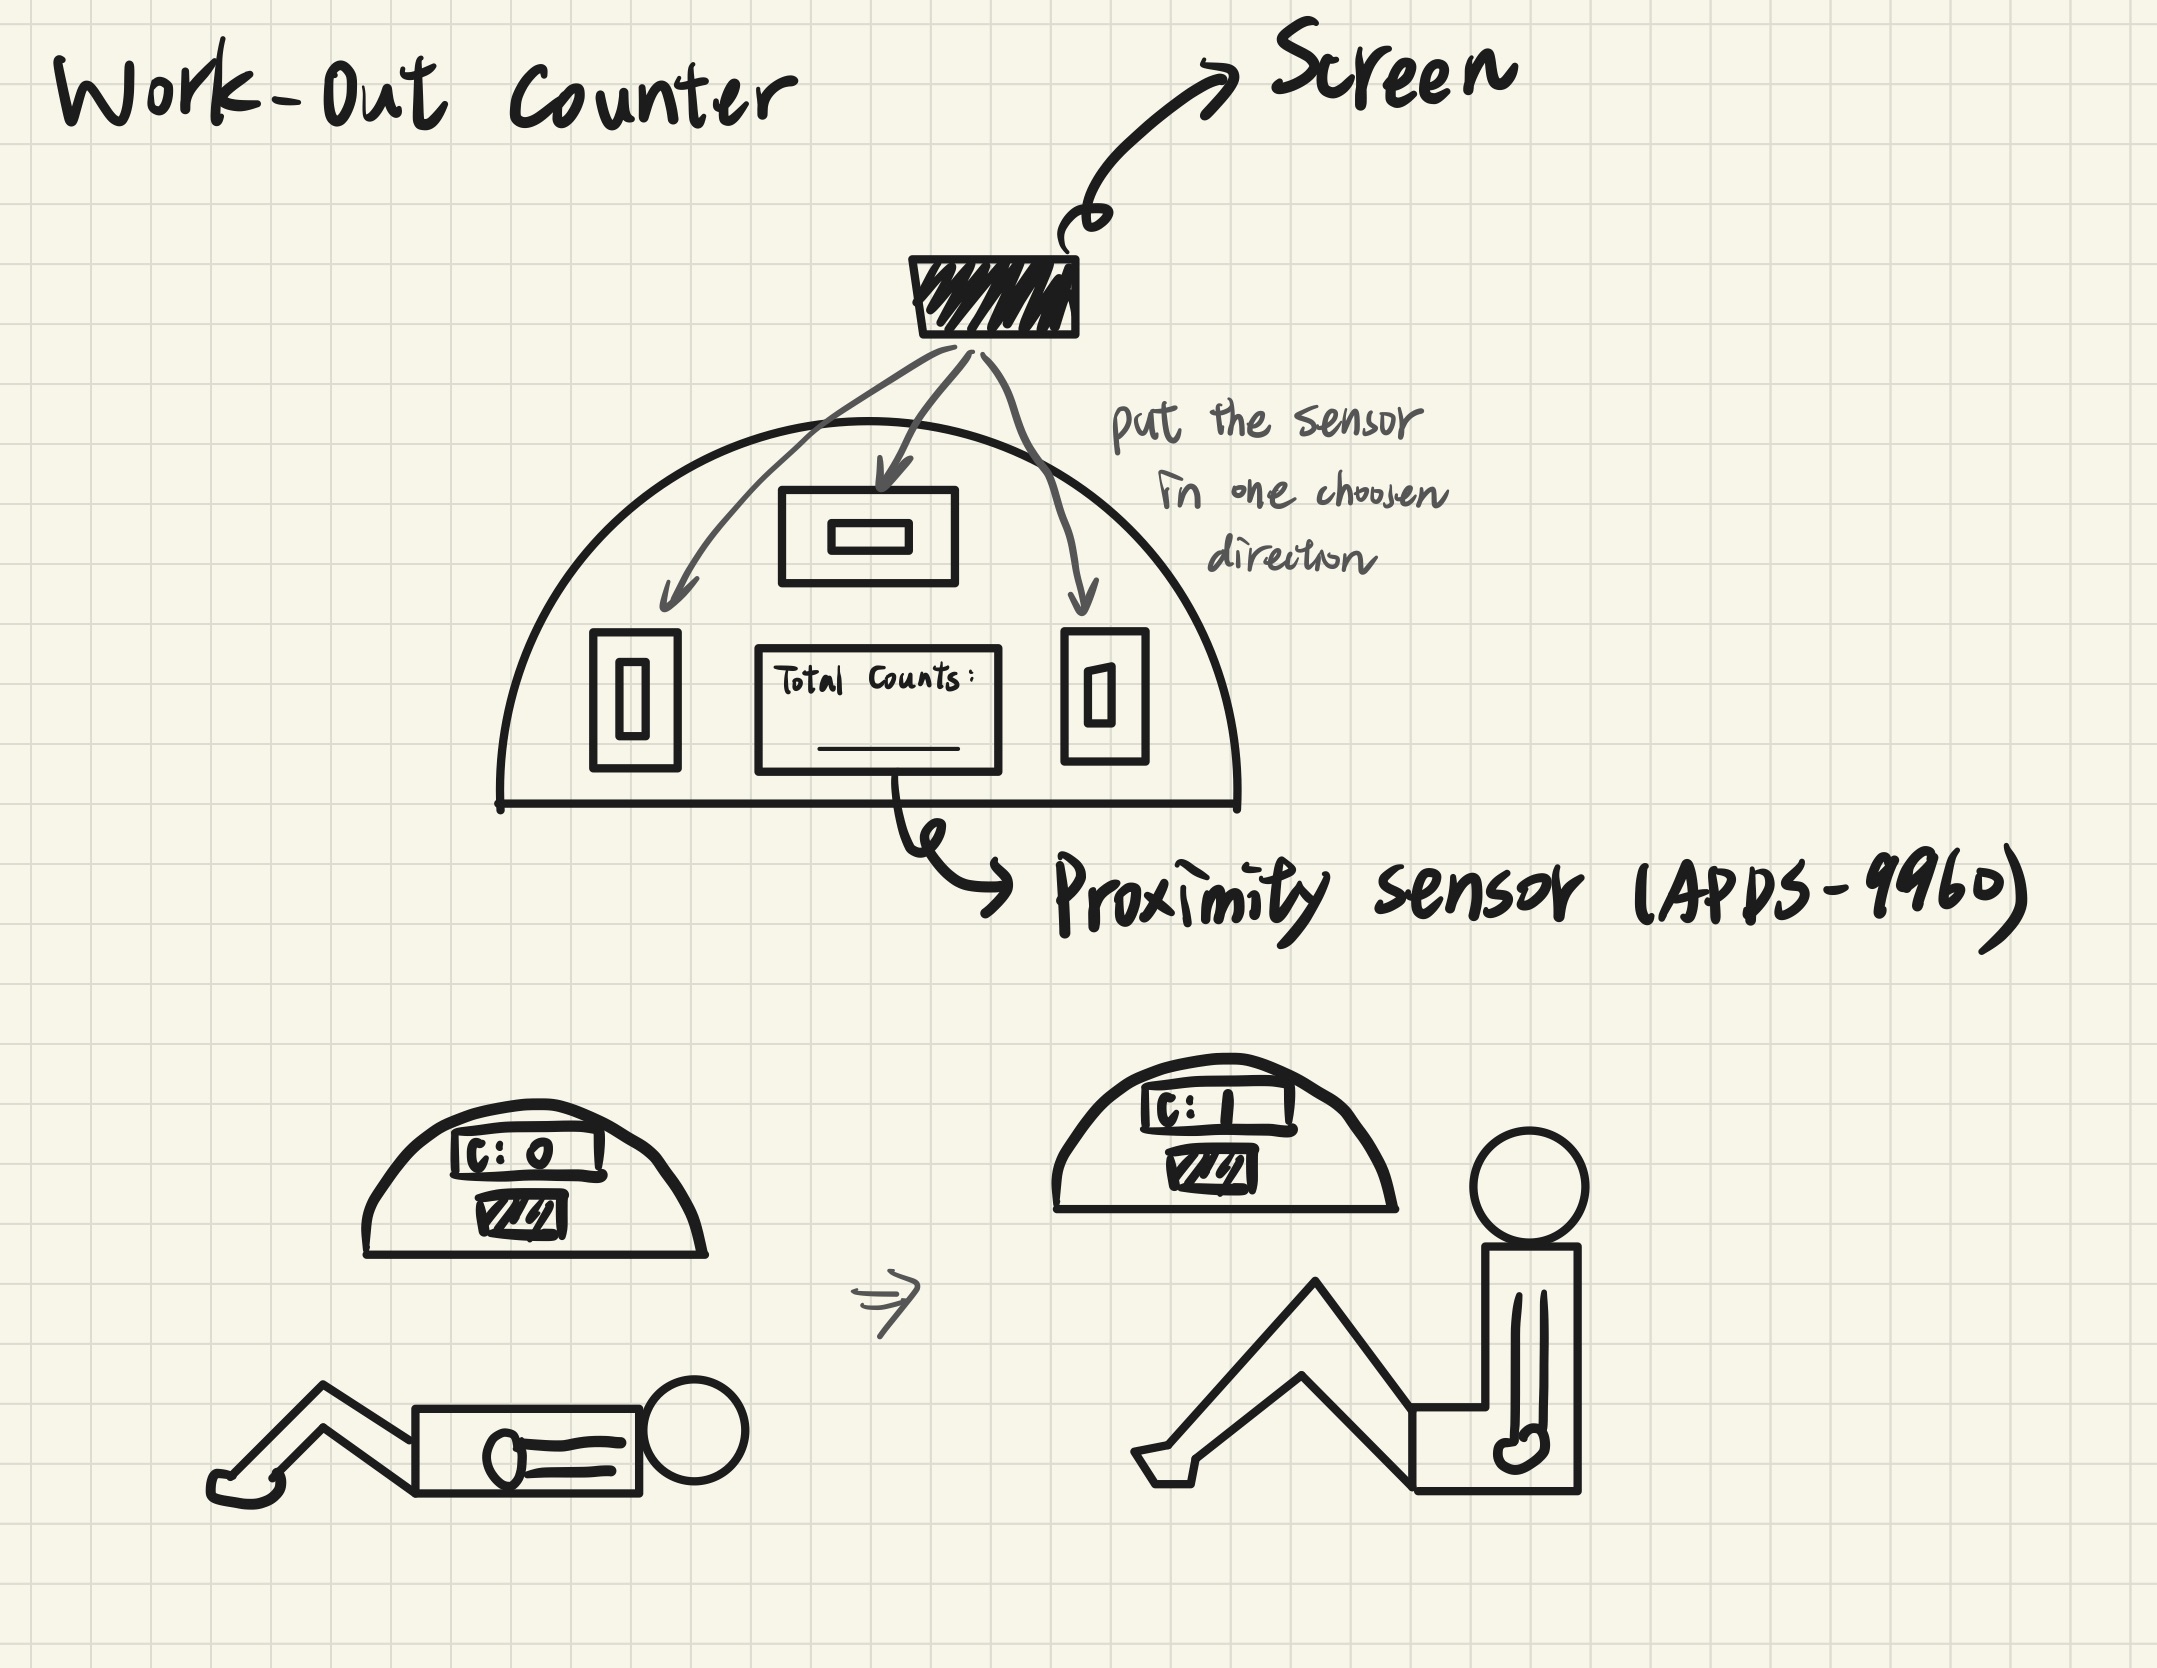 Work-Out Counter
Screen
put the sensor
in one chosen
direction
Total Counts:
Proximity sensor (APDS-9960)
C: 0
C: 1